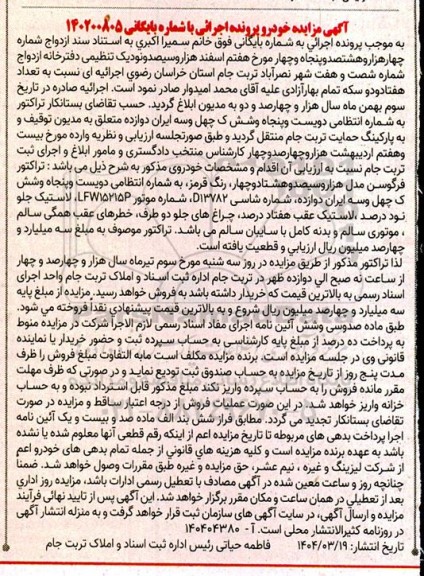 آگهی مزایده خودرو پرونده اجرائی با شماره بایگانی ۱۴۰۲۰۰۸۰۵
به موجب پرونده اجرائي به شماره بایگانی فوق خانم سمیرا اکبري به استناد سند ازدواج شماره
چهارهزاروهشتصدوپنجاه وچهار مورخ هفتم اسفند هزاروسیصدونودیک تنظیمی دفترخانه ازدواج
شماره شصت و هفت شهر نصرآباد تربت جام استان خراسان رضوي اجرائیه ای نسبت به تعداد
هفتادودو سکه تمام بهارآزادی علیه آقای محمد امیدوار صادر نموده است. اجرائیه صادره در تاریخ
سوم بهمن ماه سال هزار و چهارصد و دو به مدیون ابلاغ گردید. حسب تقاضای بستانکار تراکتور
به شماره انتظامی دویست وپنجاه وشش ک چهل وسه ایران دوازده متعلق به مدیون توقیف و
به پارکینگ حمایت تربت جام منتقل گردید و طبق صورتجلسه ارزیابی و نظریه وارده مورخ بیست
وهفتم اردیبهشت هزاروچهارصدوچهار کارشناس منتخب دادگستری و مامور ابلاغ و اجرای ثبت
تربت جام نسبت به ارزیابی آن اقدام و مشخصات خودروی مذکور به شرح ذیل می باشد : تراکتور
فرگوسن مدل هزاروسیصدوهشتادوچهار، رنگ قرمز، به شماره انتظامی دویست وپنجاه وشش
ک چهل وسه ایران دوازده، شماره شاسی D۱۳۷۸۲، شماره موتور LFW۱۵۲۱۵P، لاستیک جلو
نود درصد ،لاستیک عقب هفتاد درصد، چراغ های جلو دو طرف، خطرهای عقب همگی سالم
، موتوری سالم و بدنه کامل با سایبان سالم می باشد. تراکتور موصوف به مبلغ سه میلیارد و
چهارصد میلیون ریال ارزیابی و قطعیت یافته است.
لذا تراکتور مذکور از طریق مزایده در روز سه شنبه مورخ سوم تیرماه سال هزار و چهارصد و چهار
از ساعت نه صبح الي دوازده ظهر در تربت جام اداره ثبت اسناد و املاک تربت جام واحد اجرای
اسناد رسمی به بالاترین قیمت که خریدار داشته باشد به فروش خواهد رسید. مزایده از مبلغ پایه
سه میلیارد و چهارصد میلیون ریال شروع و به بالاترین قیمت پیشنهادی نقدا فروخته می شود.
طبق ماده صدوسی وشش آئین نامه اجرای مفاد اسناد رسمی لازم الاجرا شرکت در مزایده منوط
به پرداخت ده درصد از مبلغ پایه کارشناسی به حساب سپرده ثبت و حضور خریدار یا نماینده
قانونی وی در جلسه مزایده است. برنده مزایده مکلف است مابه التفاوت مبلغ فروش را ظرف
مدت پنج روز از تاریخ مزایده به حساب صندوق ثبت تودیع نماید و در صورتی که ظرف مهلت
مقرر مانده فروش را به حساب سپرده واریز نکند مبلغ مذکور قابل استرداد نبوده و به حساب
خزانه واریز خواهد شد. در این صورت عملیات فروش از درجه اعتبار ساقط و مزایده در صورت
تقاضای بستانکار تجدید می گردد. مطابق فراز شش بند الف ماده صد و بیست و یک آئین نامه
اجرا پرداخت بدهی های مربوطه تا تاریخ مزایده اعم از اینکه رقم قطعی آنها معلوم شده یا نشده
باشد به عهده برنده مزایده است و کلیه هزینه هاي قانوني از جمله تمام بدهی های خودرو اعم
از شرکت لیزینگ و غیره ، نیم عشر، حق مزایده و غیره طبق مقررات وصول خواهد شد. ضمنا
چنانچه روز و ساعت معین شده در آگهی مصادف با تعطیل رسمی ادارات باشد، مزایده روز اداری
بعد از تعطیلی در همان ساعت و مکان مقرر برگزار خواهد شد. این آگهی پس از تایید نهائی فرآیند
مزایده و ارسال آگهی، در سایت آگهی های سازمان ثبت قرار خواهد گرفت و به منزله انتشار آگهی
در روزنامه کثیرالانتشار محلی است. آ - ۱۴۰۴۰۴۳۸۰
تاریخ انتشار: ۱۴۰۴/۰۳/۱۹ فاطمه حیاتی رئیس اداره ثبت اسناد و املاک تربت جام